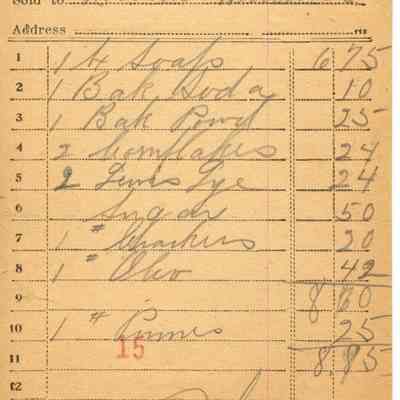 Sold to
Address
1 1 4 Soaps 6 75
2 1 Bak Soda 10
3 1 Bak Powd 25
4 2 Cornflakes 24
5 2 Lewis Lye 24
6 Sugar 50
7 1 # Crackers 20
8 1 # Oleo 42
9 8 60
10 1 # Prunes 25
15
11 8.85
12